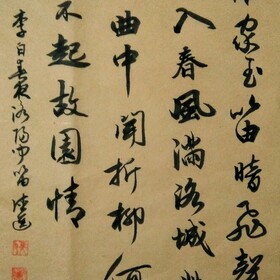 家玉笛暗飛聲
入春風滿洛城
曲中聞折柳何
不起故園情
李白春夜洛陽聞笛